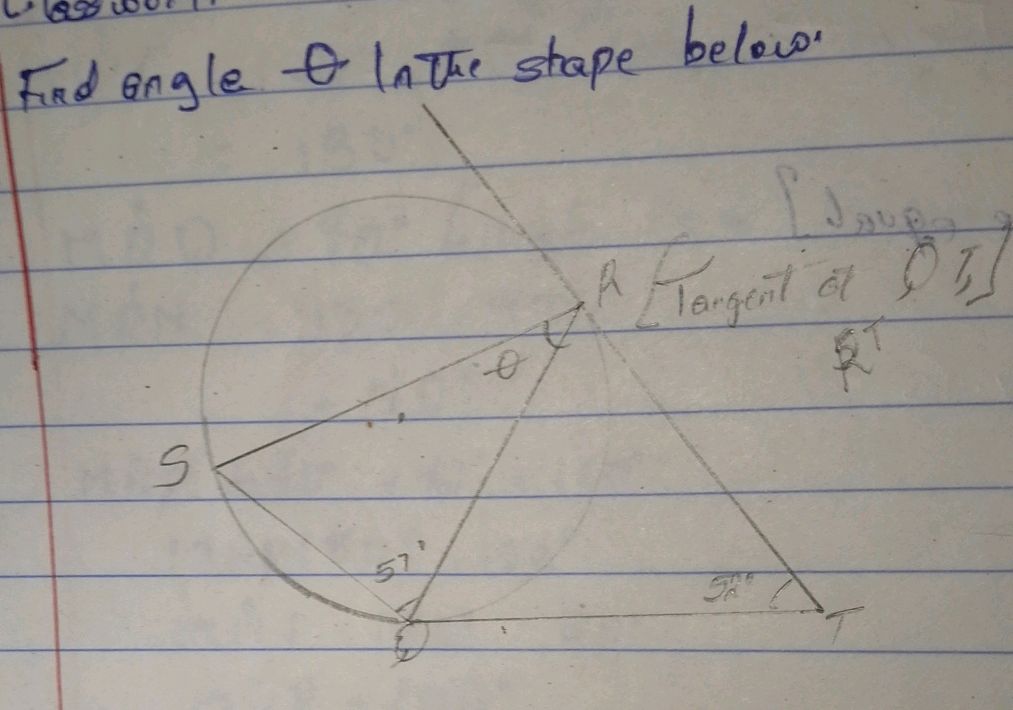 Find angle θ In The shape below.
R [Tangent at QT,]
RT
θ
S
57°
52°
Q
T